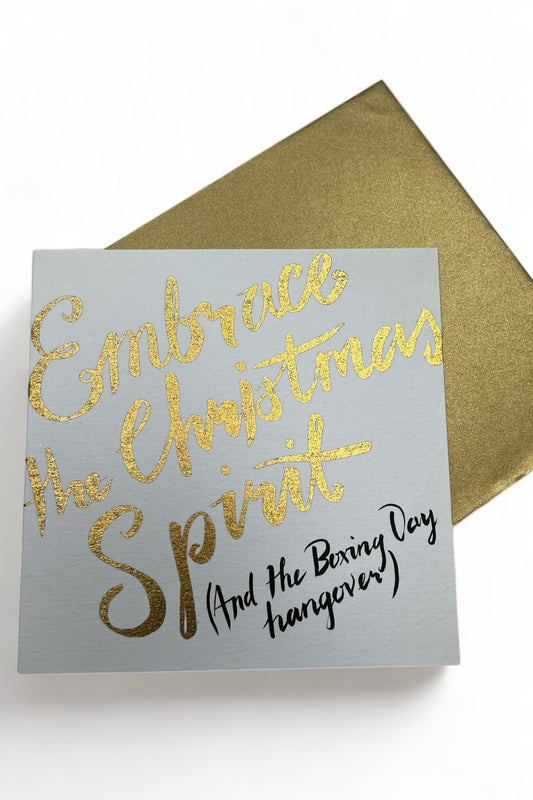 Embrace
the Christmas
Spirit
(And the Boxing Day
hangover)